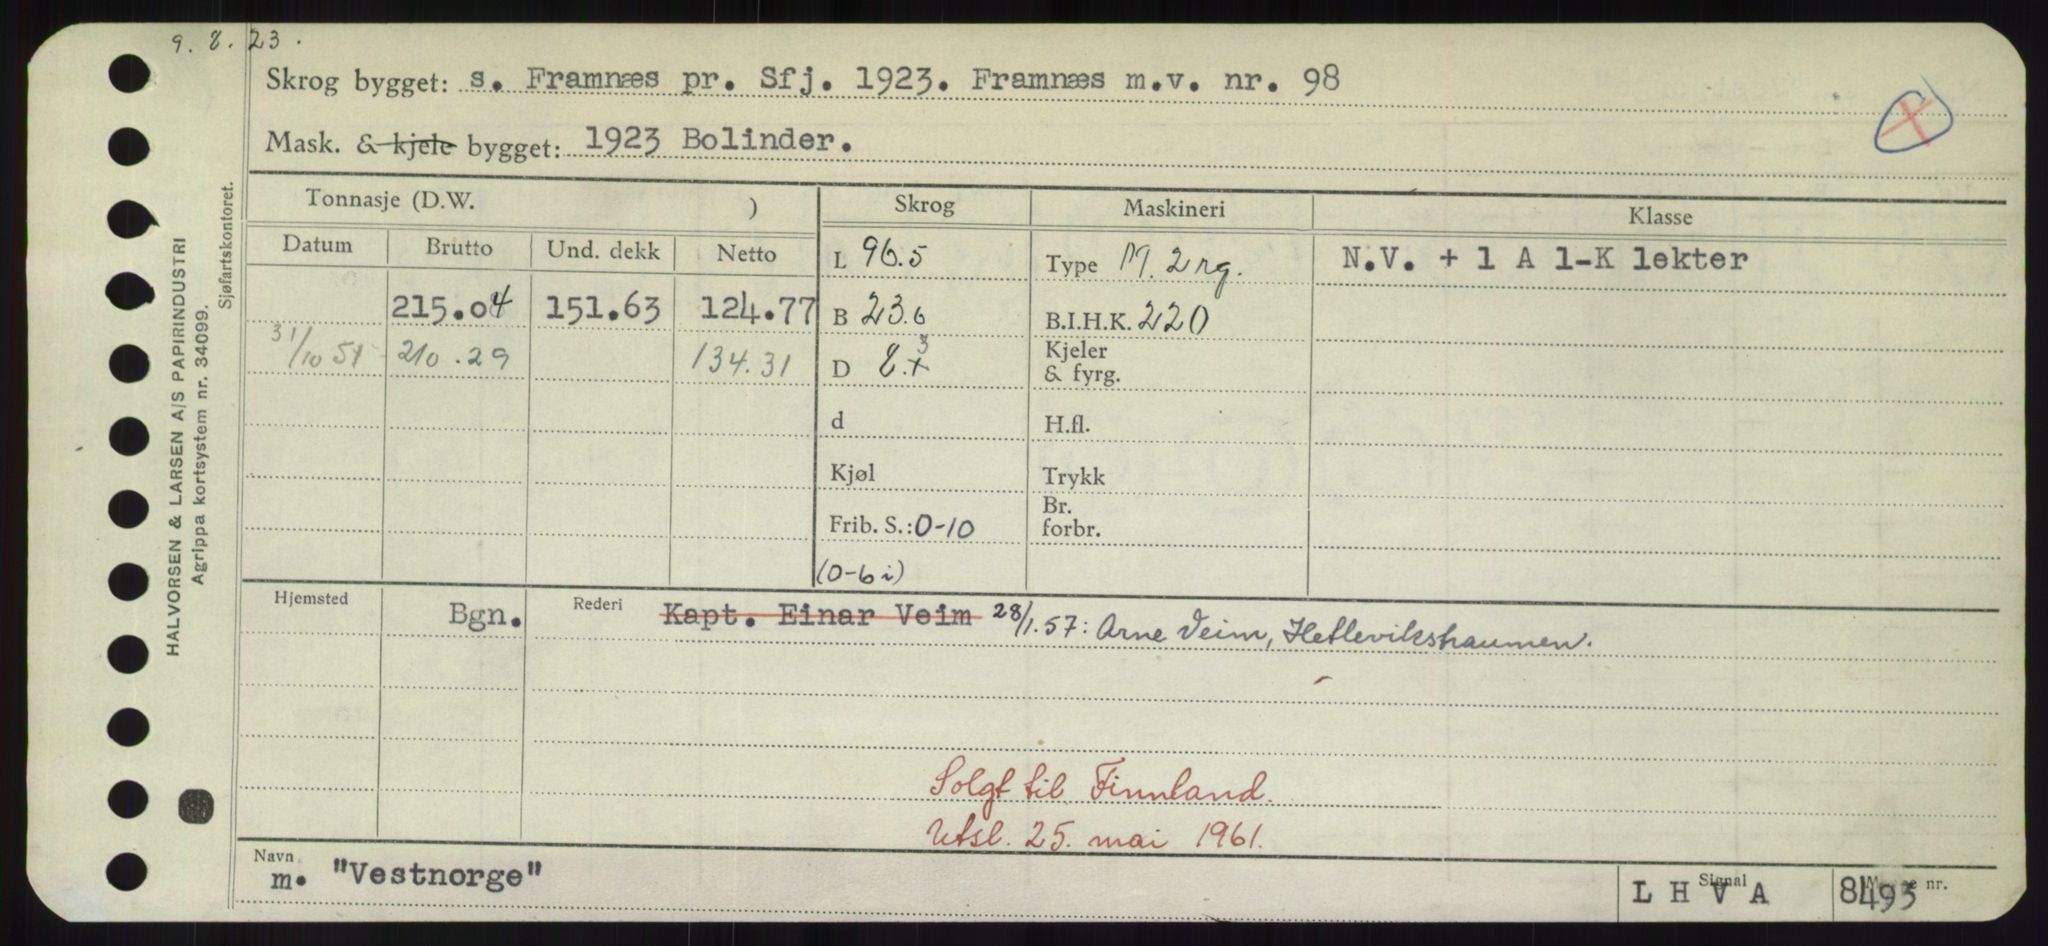 9. 8. 23.
Skrog bygget: s. Framnæs pr. Sfj. 1923. Framnæs m.v. nr. 98
Mask. & kjele bygget: 1923 Bolinder.
Tonnasje (D.W. ) Skrog Maskineri Klasse
Datum Brutto Und. dekk Netto L 96.5 Type M. 2 rg. N.V. + 1 A 1-K lekter
215.04 151.63 124.77 B 23.6 B.I.H.K. 220
31/10 51 210.29 134.31 D 8.3 Kjeler
& fyrg.
d H.fl.
Kjøl Trykk
Frib. S.: 0-10 Br.
forbr.
(0-6 i)
Hjemsted Bgn. Rederi Kapt. Einar Veim 28/1.57: Arne Veim, Hetlevikstraumen.
Solgt til Finnland.
Utsl. 25. mai 1961.
Navn m. "Vestnorge" Signal L H V A nr. 8493
HALVORSEN & LARSEN A/S PAPIRINDUSTRI
Agrippa kortsystem nr. 34099.
Sjøfartskontoret.